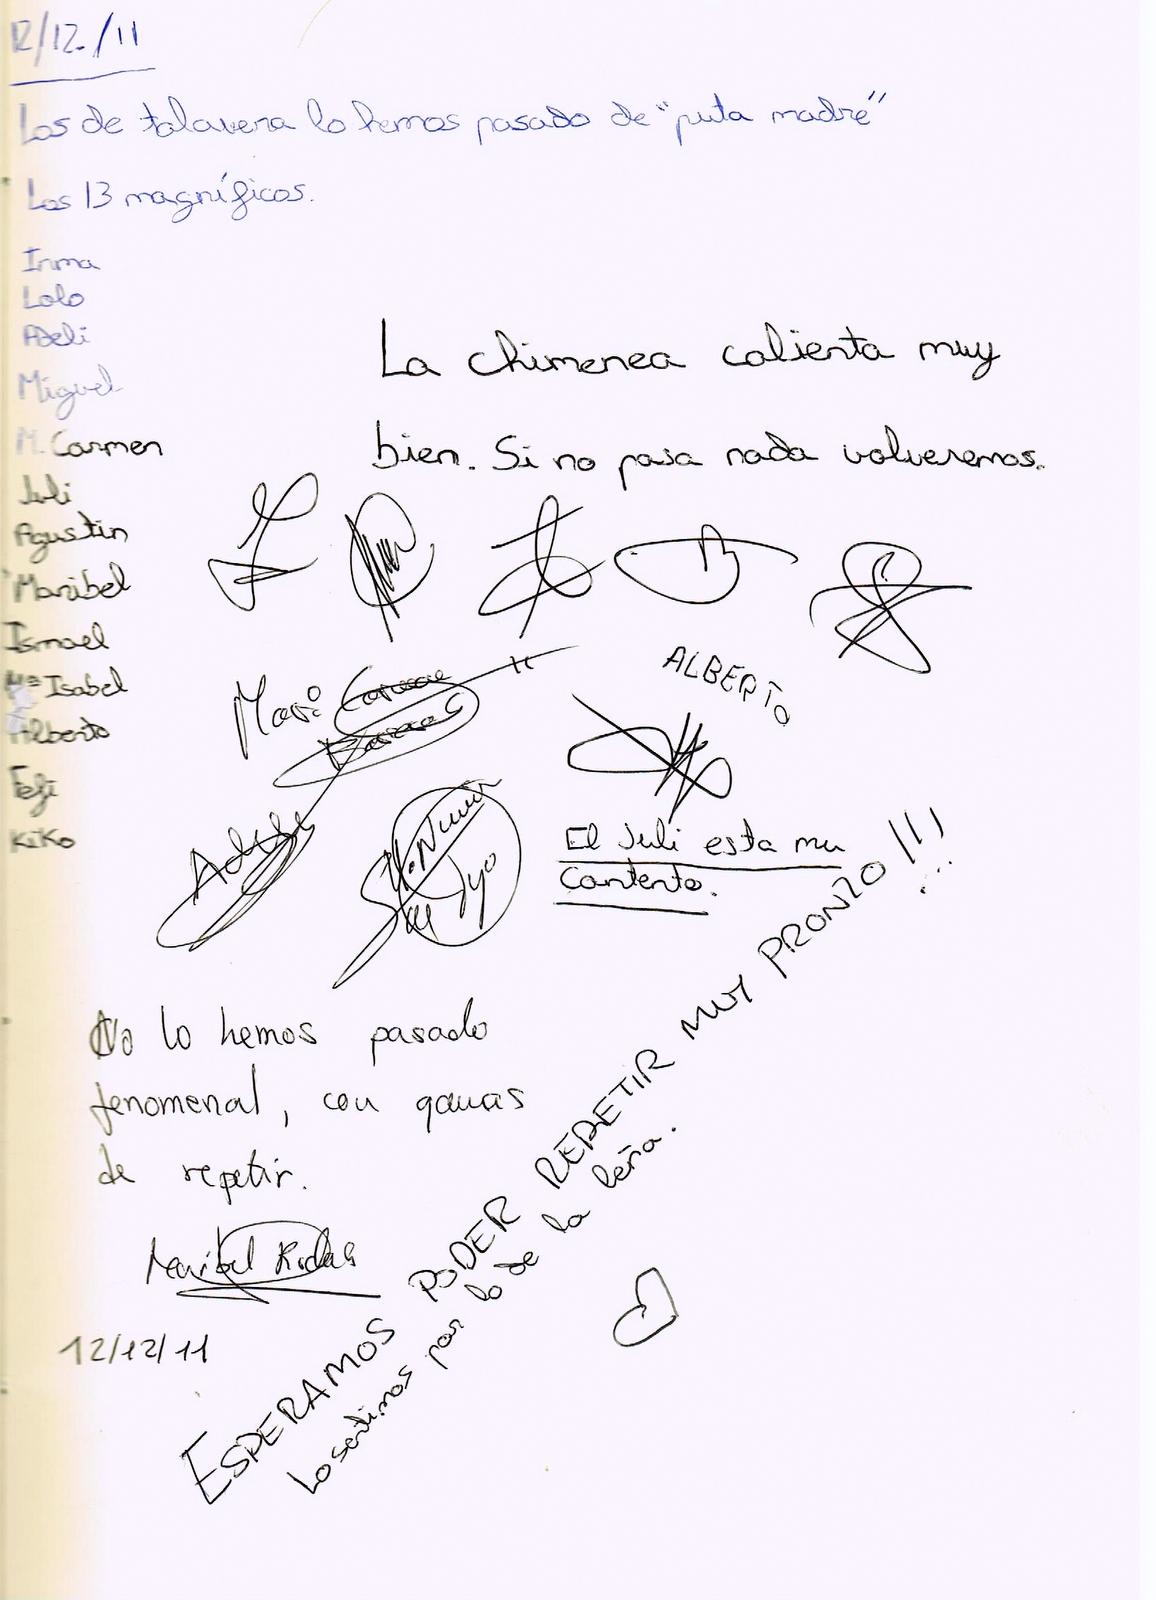 12/12/11
Los de talavera lo hemos pasado de "puta madre"
Los 13 magníficos.
Inma
Lolo
Adeli
Miguel
M. Carmen
Juli
Agustín
Maribel
Ismael
Mª Isabel
Alberto
Fefi
Kiko
La chimenea calienta muy
bien. Si no pasa nada volveremos.
Mari Carmen
ALBERTO
El Juli esta mu
contento.
No lo hemos pasado
fenomenal, con ganas
de repetir.
Maribel
12/12/11
ESPERAMOS PODER REPETIR MUY PRONTO !!!
Lo sentimos por lo de la leña.